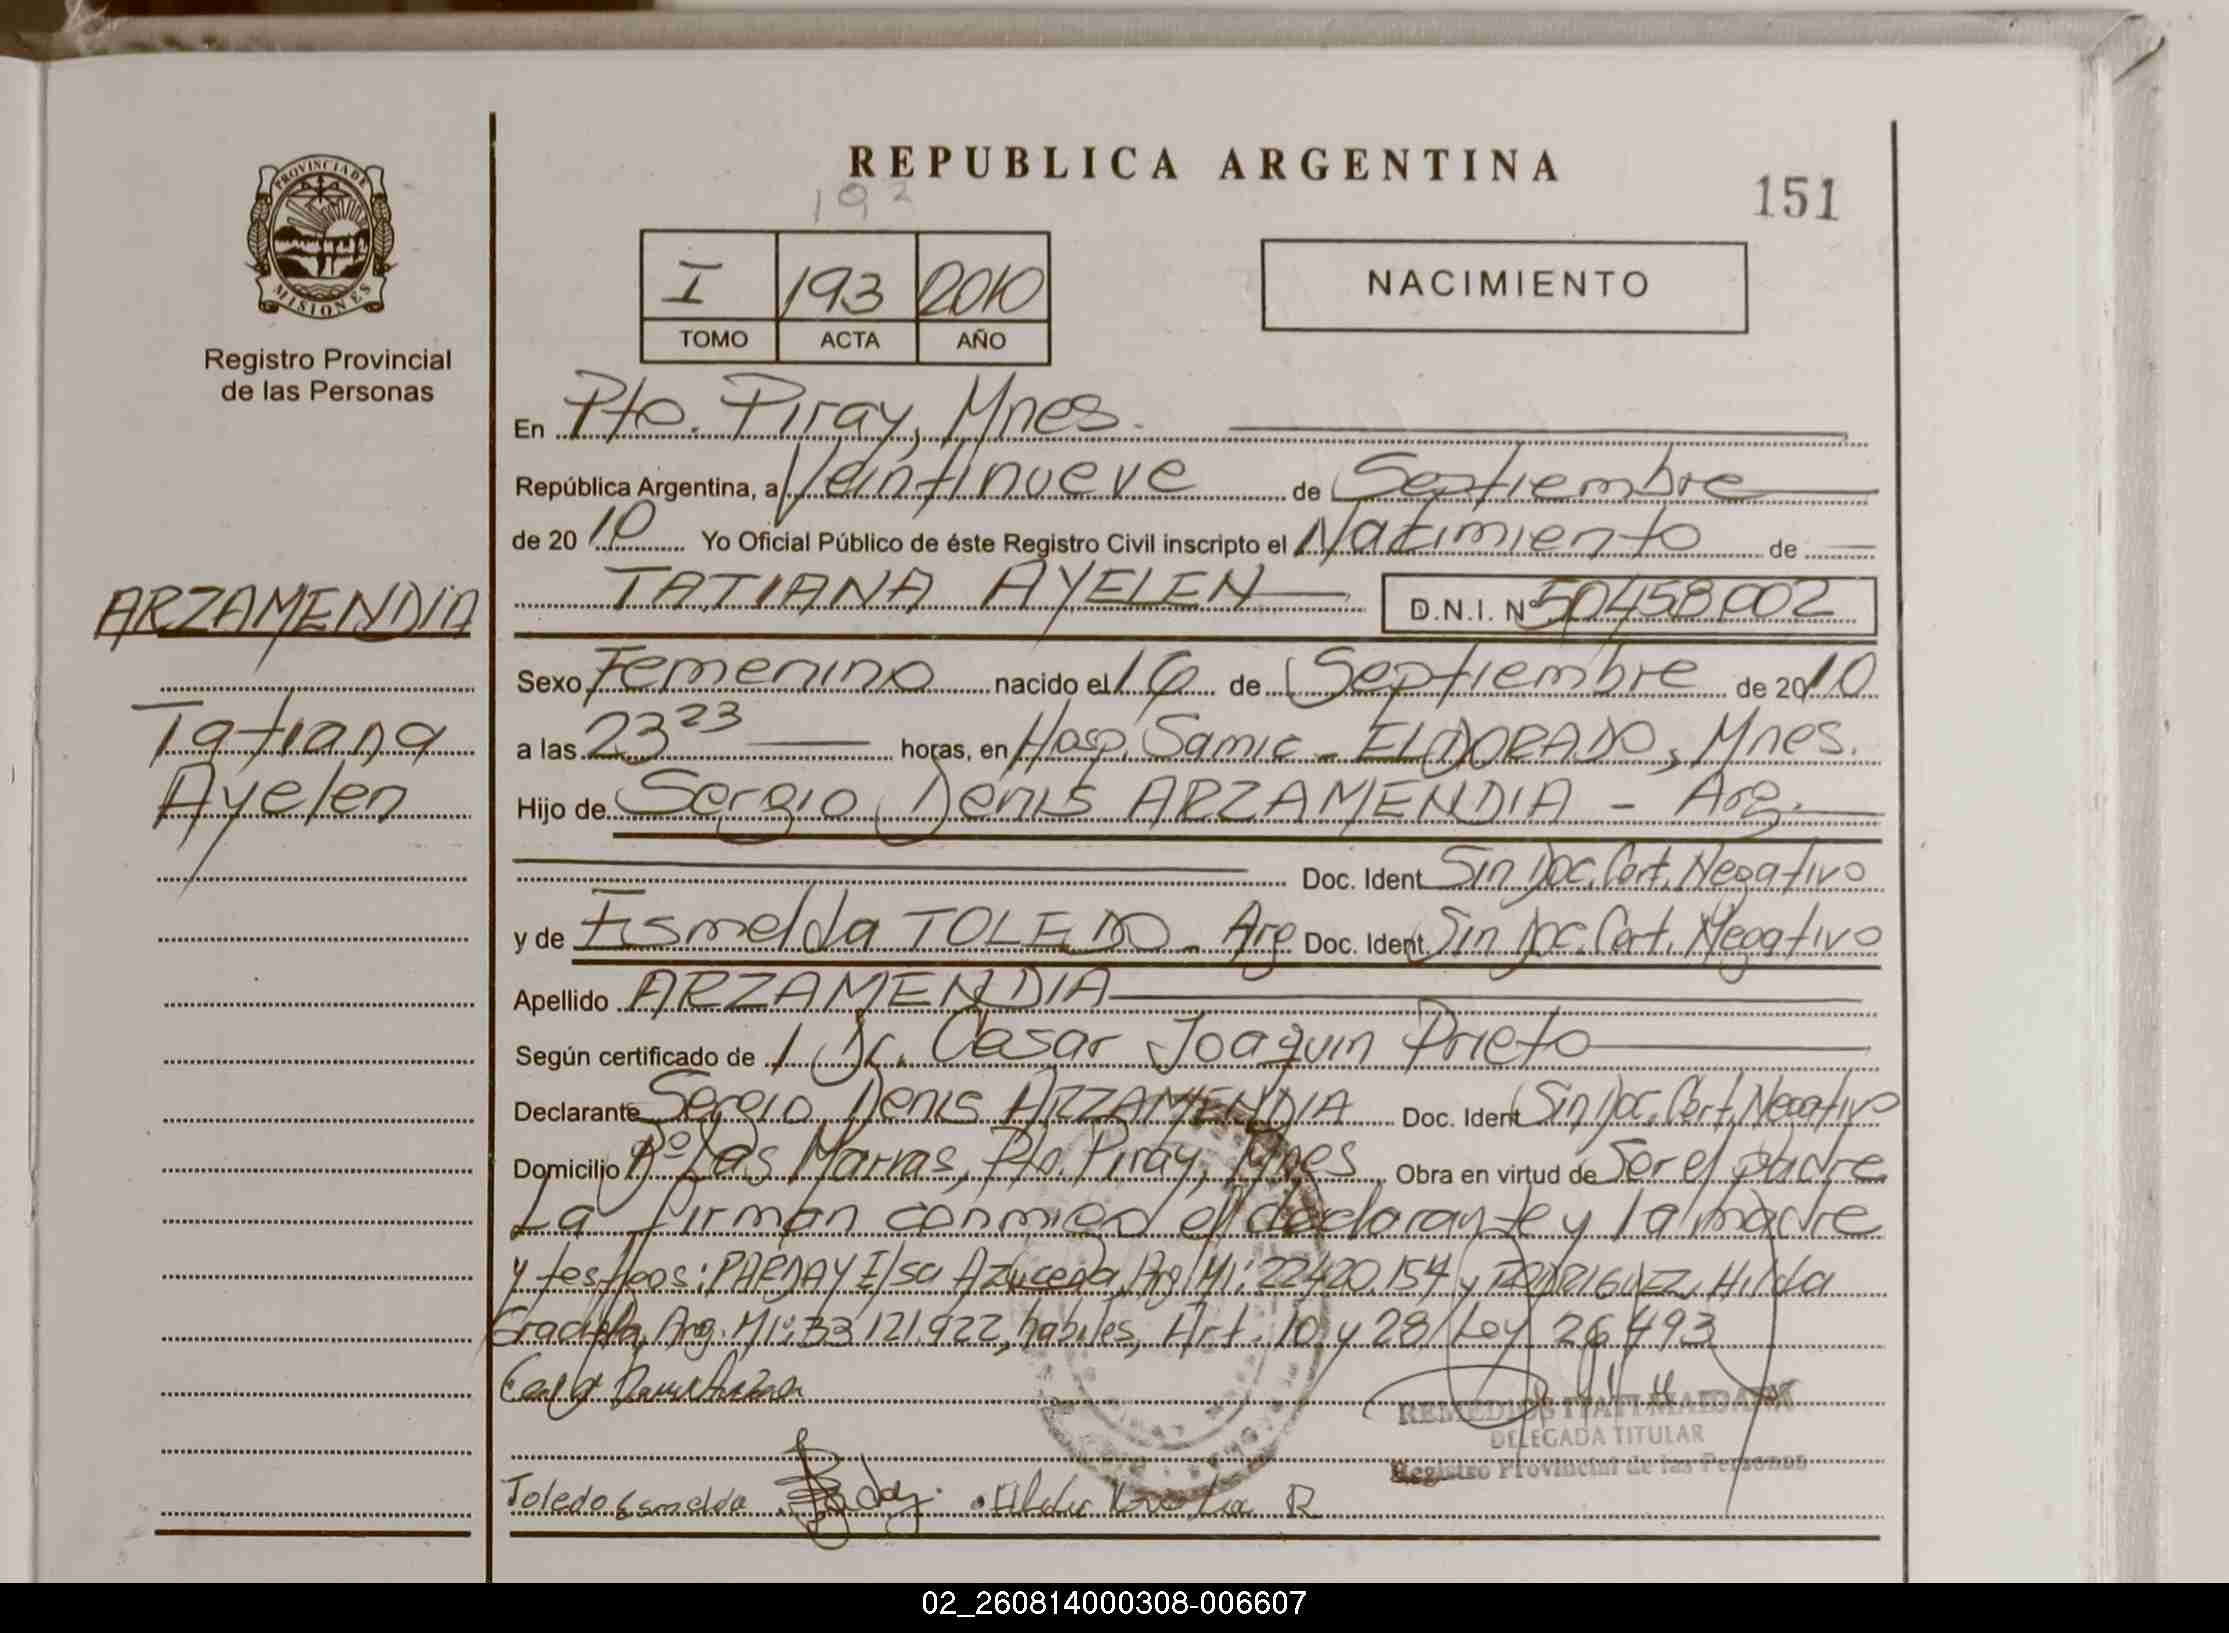 REPUBLICA ARGENTINA
151
192
PROVINCIA DE
MISIONES
Registro Provincial
de las Personas
I 193 2010
TOMO ACTA AÑO
NACIMIENTO
En Pto. Piray, Mnes.
República Argentina, a Veintinueve de Septiembre
de 2010 Yo Oficial Público de éste Registro Civil inscripto el Nacimiento de
TATIANA AYELEN D.N.I. Nº 50458.002
ARZAMENDIA
Tatiana
Ayelen
Sexo Femenino nacido el 16 de Septiembre de 2010
a las 23 23 horas, en Hosp. Samic - ELDORADO, Mnes.
Hijo de Sergio Denis ARZAMENDIA - Arg.
Doc. Ident Sin Doc. Cert. Negativo
y de Esmelda TOLEDO - Arg Doc. Ident. Sin Doc. Cert. Negativo
Apellido ARZAMENDIA
Según certificado de / Dr. Cesar Joaquin Prieto
Declarante Sergio Denis ARZAMENDIA Doc. Ident Sin Doc. Cert. Negativo
Domicilio Bº Las Marias, Pto. Piray, Mnes Obra en virtud de Ser el padre
La firman conmigo el declarante y la madre
y testigos: Elsa Azucena, Arg. MI: 22420.154 y RODRIGUEZ, Hilda
Graciela, Arg. MI: 33 121.922, habiles, Art. 10 y 28 Ley 26 493
DELEGADA TITULAR
Registro Provincial de las Personas
Toledo Esmelda
02_260814000308-006607